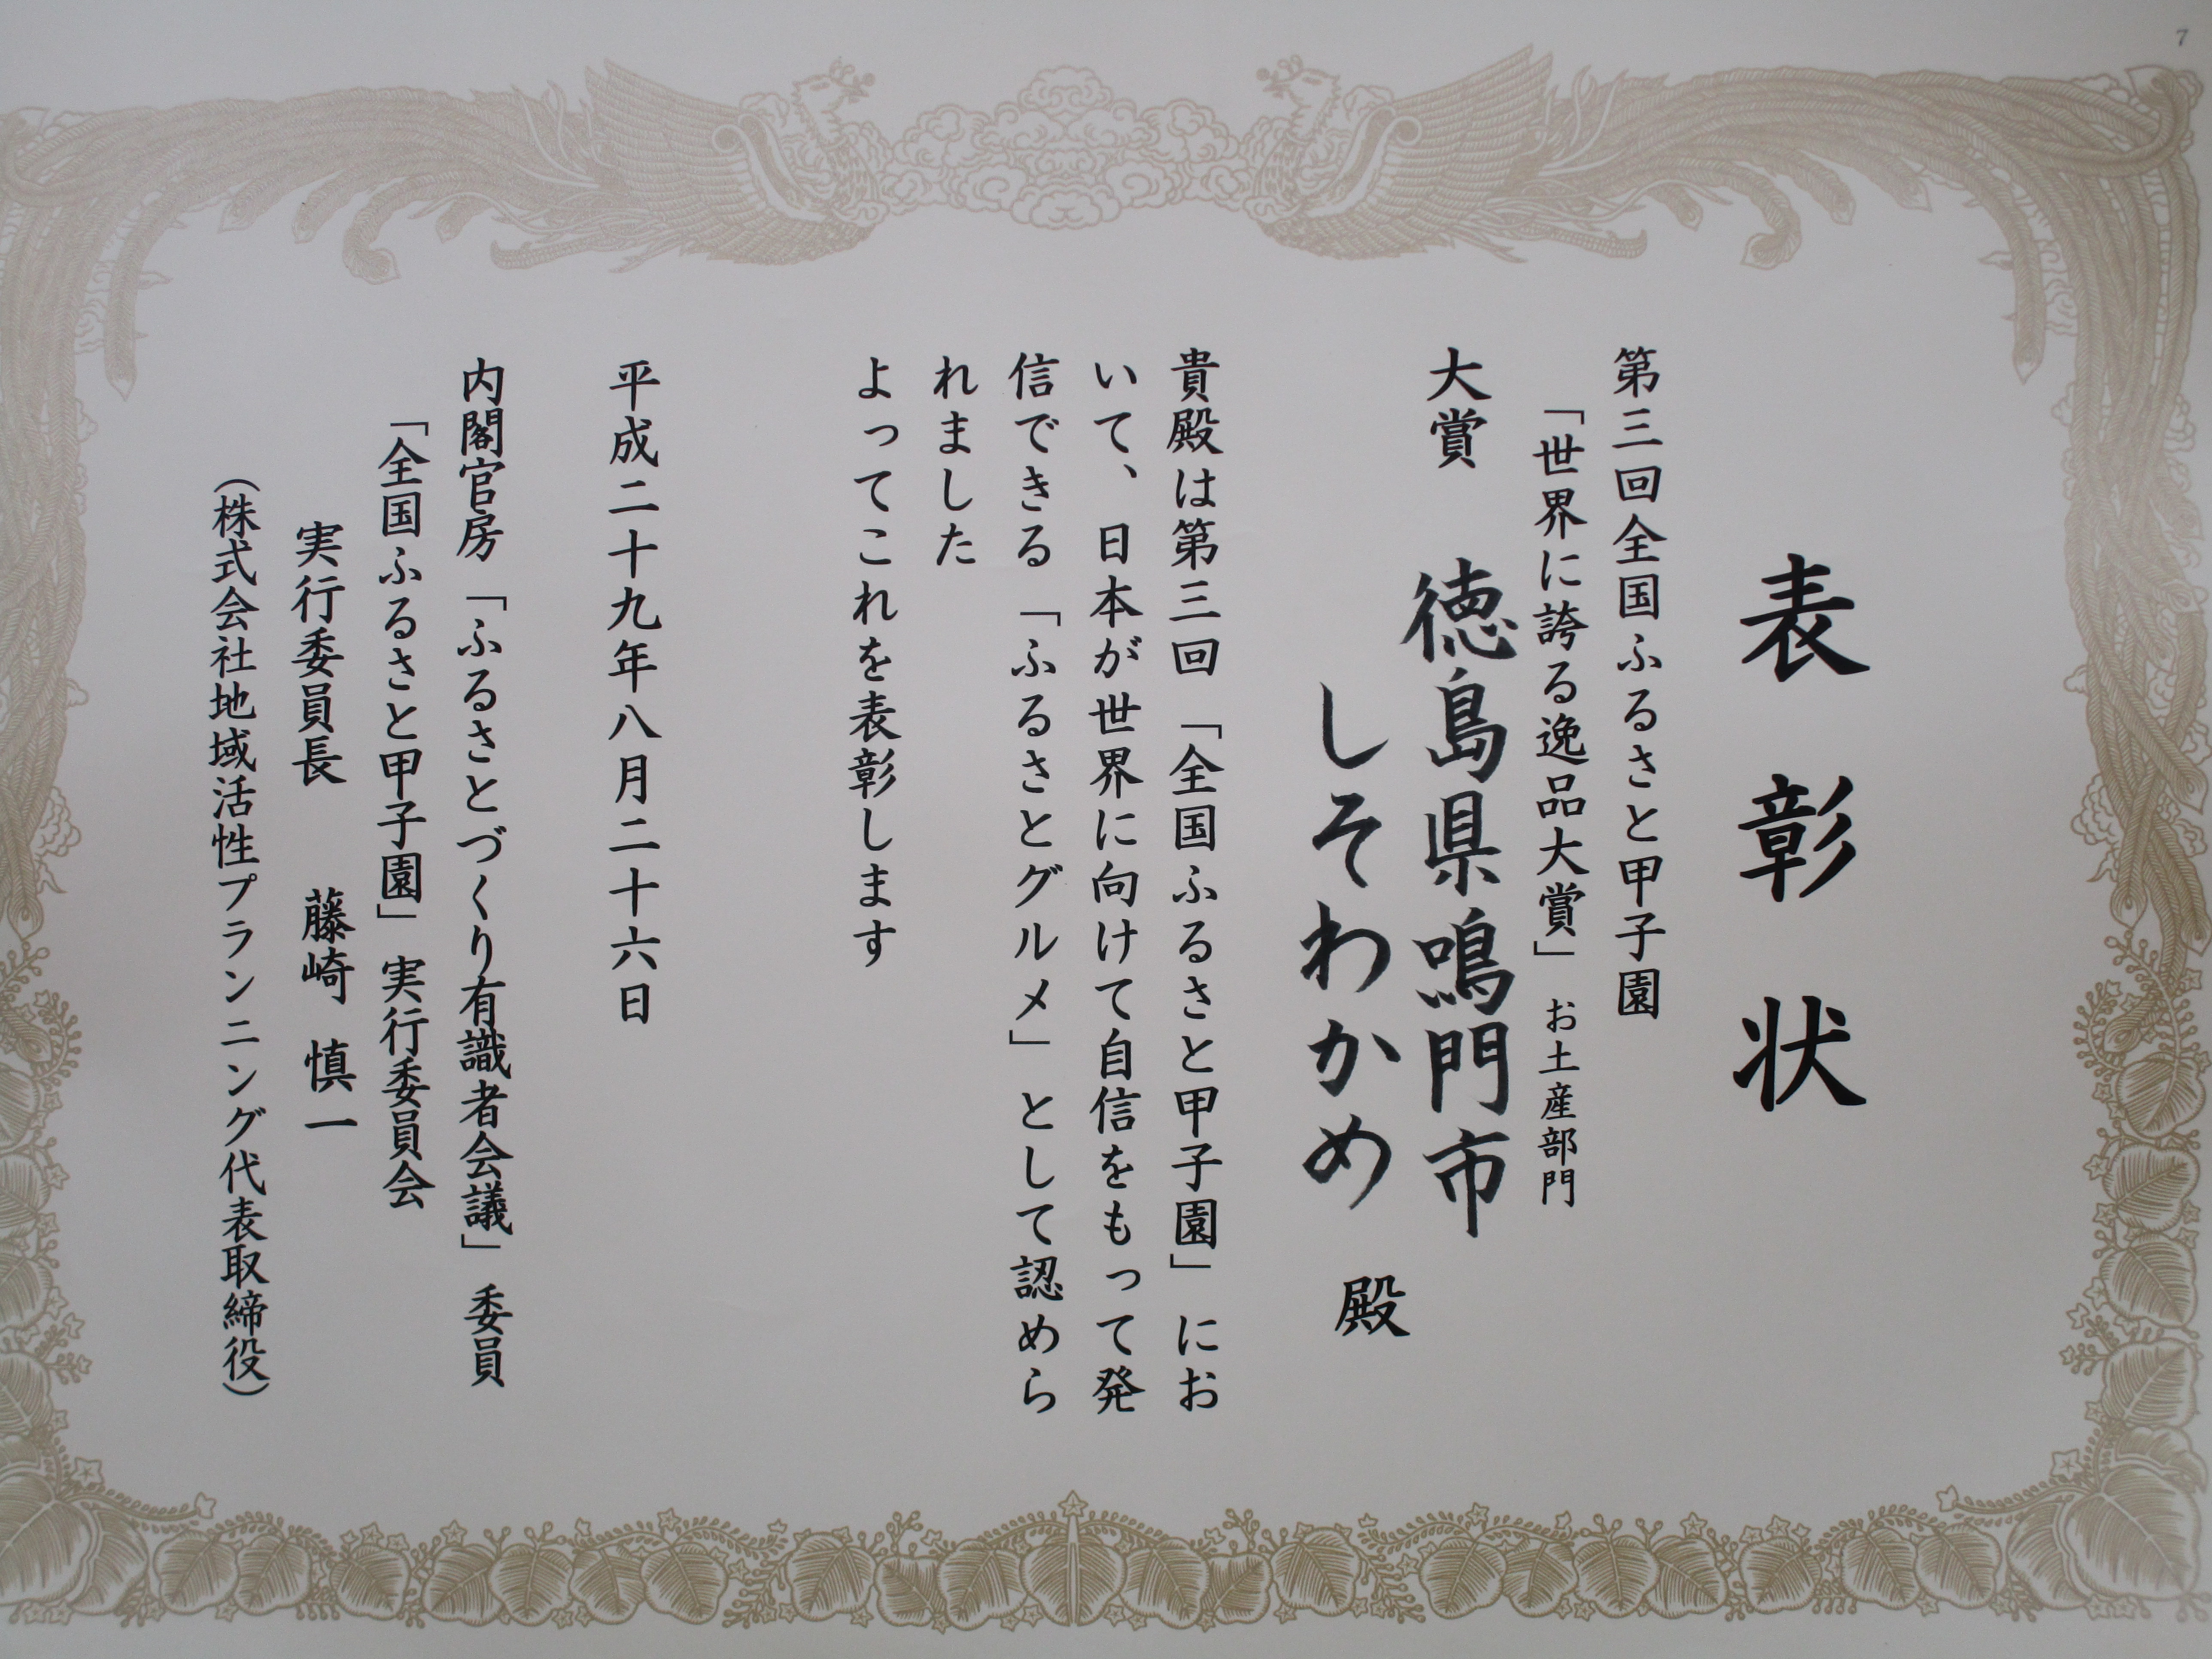 7
表彰状
第三回全国ふるさと甲子園
「世界に誇る逸品大賞」 お土産部門
大賞 徳島県鳴門市
しそわかめ 殿
貴殿は第三回「全国ふるさと甲子園」にお
いて、日本が世界に向けて自信をもって発
信できる「ふるさとグルメ」として認めら
れました
よってこれを表彰します
平成二十九年八月二十六日
内閣官房「ふるさとづくり有識者会議」委員
「全国ふるさと甲子園」実行委員会
実行委員長 藤崎 慎一
（株式会社地域活性プランニング代表取締役）